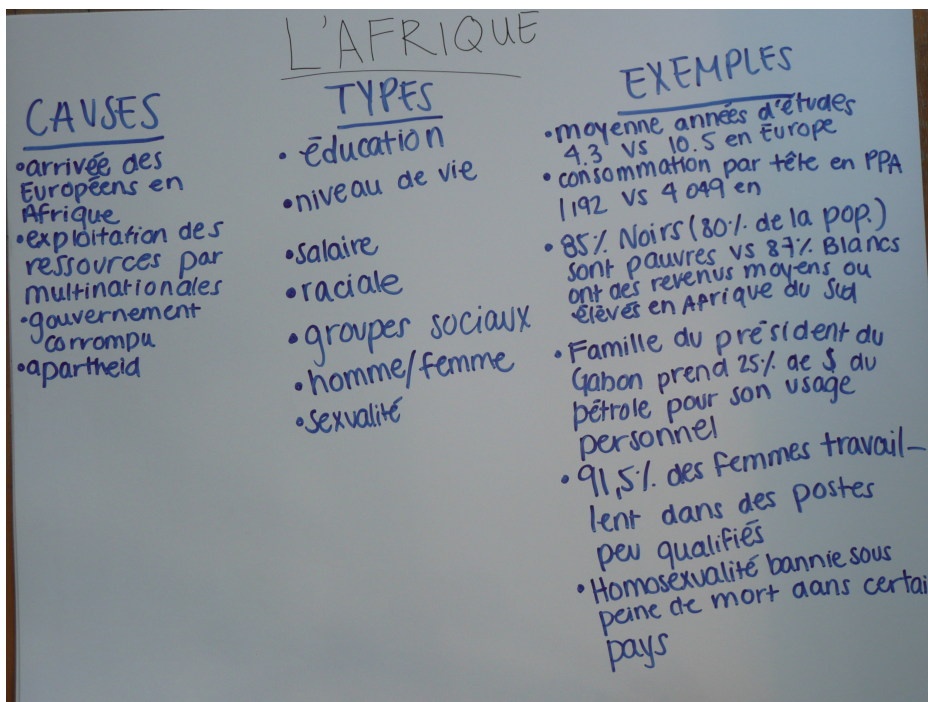 L'AFRIQUE
CAUSES
•arrivée des
Européens en
Afrique
•exploitation des
ressources par
multinationales
•gouvernement
corrompu
•apartheid
TYPES
• éducation
•niveau de vie
•salaire
•raciale
•groupes sociaux
•homme/femme
•sexualité
EXEMPLES
•moyenne années d'études
4.3 vs 10.5 en Europe
• consommation par tête en PPA
1192 vs 4 049 en
• 85% Noirs (80% de la pop.)
sont pauvres vs 87% Blancs
ont des revenus moyens ou
élevés en Afrique du Sud
•Famille du président du
Gabon prend 25% de $ du
pétrole pour son usage
personnel
•91,5% des femmes travail-
lent dans des postes
peu qualifiés
•Homosexualité bannie sous
peine de mort dans certai
pays